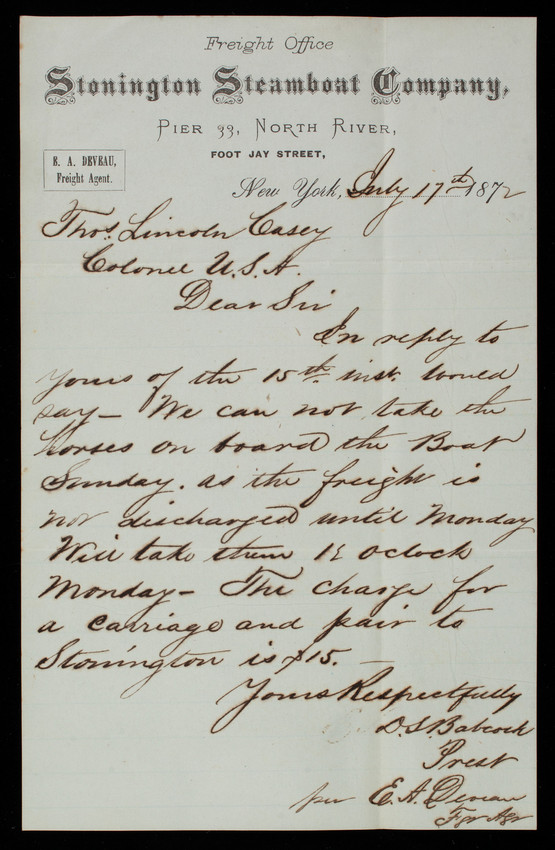 Freight Office
Stonington Steamboat Company,
Pier 33, North River,
FOOT JAY STREET,
E. A. DEVEAU,
Freight Agent.
New York, July 17th 1872
Thos. Lincoln Casey
Colonel U.S.A.
Dear Sir
In reply to
yours of the 15th inst. would
say - We can not take the
horses on board the Boat
Sunday. as the freight is
not discharged until Monday
Will take them Oclock
Monday - The charge for
a carriage and pair to
Stonington is $15. —
Yours Respectfully
D.S. Babcock
Prest
per E. A. Deveau
Fgr Agr